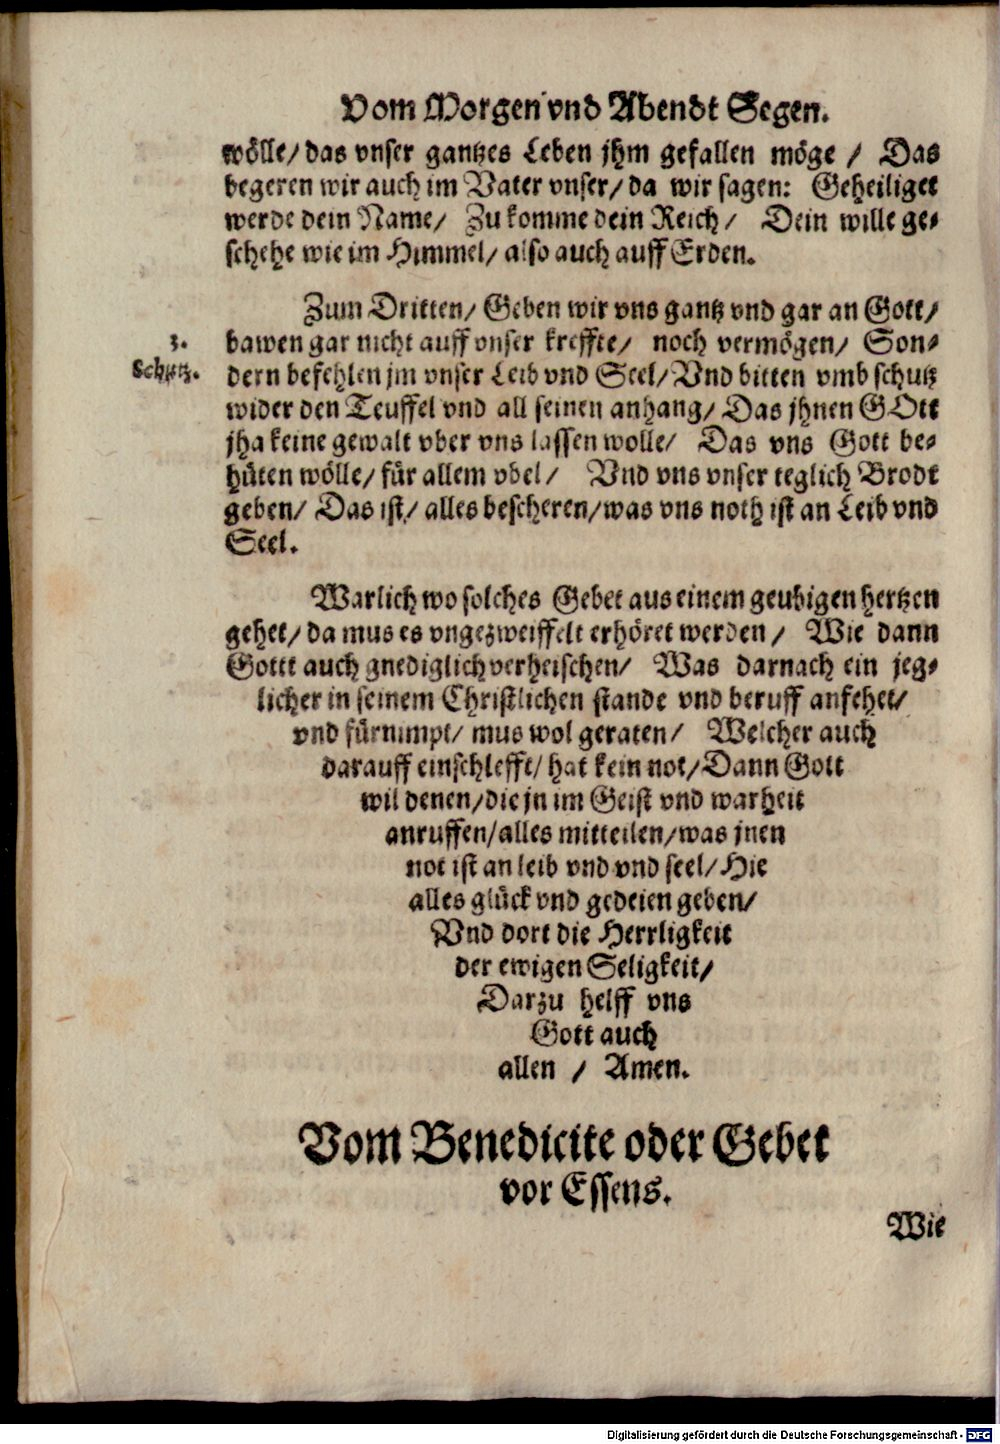 Vom Morgen vnd Abendt Segen.
wölle/ das vnser gantzes Leben jhm gefallen möge / Das
begeren wir auch im Vater vnser/ da wir sagen: Geheiliget
werde dein Name/ Zu komme dein Reich/ Dein wille ge-
schehe wie im Himmel/ also auch auff Erden.
Zum Dritten/ Geben wir vns gantz vnd gar an Gott/
3.
bawen gar nicht auff vnser kreffte/ noch vermögen/ Son-
Schutz.
dern befehlen jm vnser Leib vnd Seel/ Vnd bitten vmb schutz
wider den Teuffel vnd all seinen anhang/ Das jhnen GOtt
jha keine gewalt vber vns lassen wolle/ Das vns Gott be-
hüten wölle/ für allem vbel/ Vnd vns vnser teglich Brodt
geben/ Das ist/ alles bescheren/ was vns noth ist an Leib vnd
Seel.
Warlich wo solches Gebet aus einem geubigen hertzen
gehet/ da mus es vngezweiffelt erhöret werden / Wie dann
Gottt auch gnediglich verheischen/ Was darnach ein jeg-
licher in seinem Christlichen stande vnd beruff anfehet/
vnd fürnimpt/ mus wol geraten/ Welcher auch
darauff einschlefft/ hat kein not/ Dann Gott
wil denen/ die jn im Geist vnd warheit
anruffen/ alles mitteilen/ was jnen
not ist an leib vnd vnd seel/ Hie
alles glück vnd gedeien geben/
Vnd dort die Herrligkeit
der ewigen Seligkeit/
Darzu helff vns
Gott auch
allen / Amen.
Vom Benedicite oder Gebet
vor Essens.
Wie
Digitalisierung gefördert durch die Deutsche Forschungsgemeinschaft - DFG